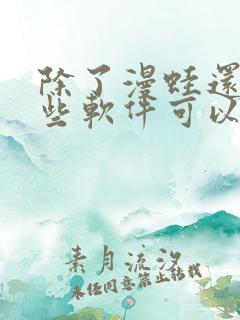 除了漫蛙還
些軟件可以
素月流汐
未经同意禁止转载